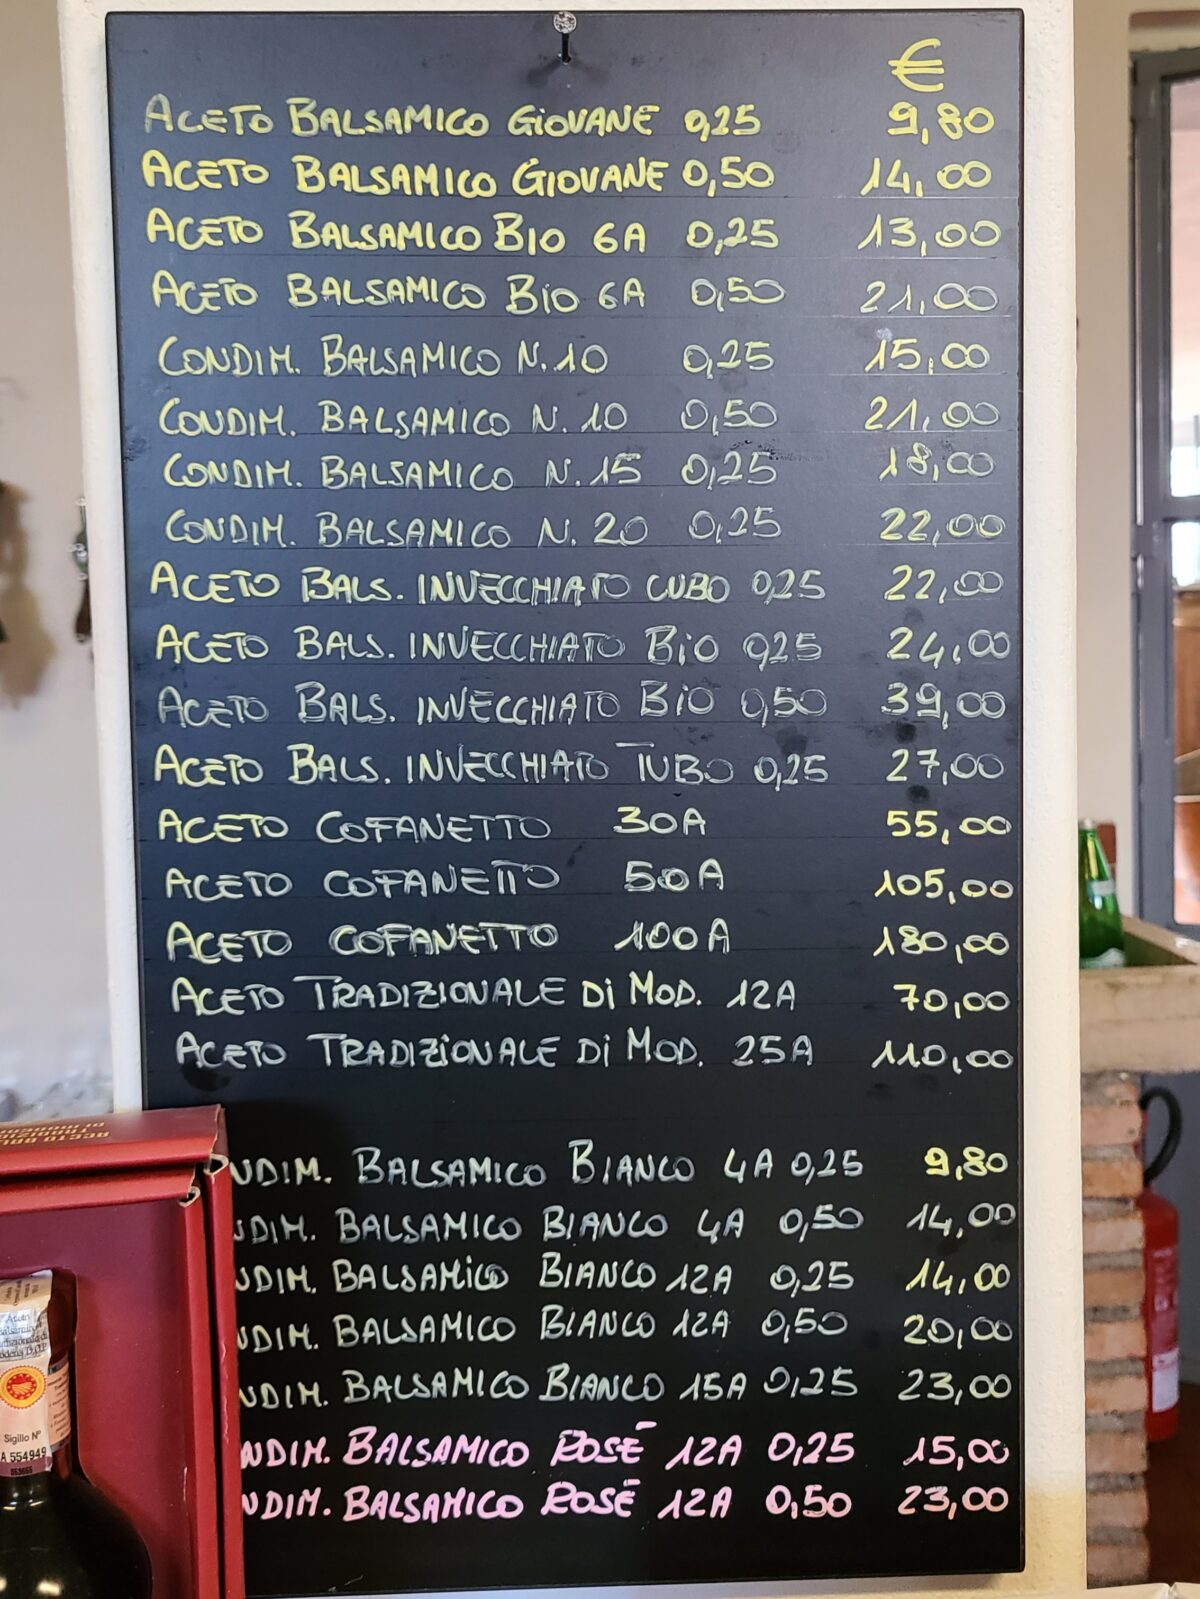 €
ACETO BALSAMICO GIOVANE 0,25 9,80
ACETO BALSAMICO GIOVANE 0,50 14,00
ACETO BALSAMICO BIO 6A 0,25 13,00
ACETO BALSAMICO BIO 6A 0,50 21,00
CONDIM. BALSAMICO N.10 0,25 15,00
CONDIM. BALSAMICO N.10 0,50 21,00
CONDIM. BALSAMICO N.15 0,25 18,00
CONDIM. BALSAMICO N.20 0,25 22,00
ACETO BALS. INVECCHIATO CUBO 0,25 22,00
ACETO BALS. INVECCHIATO BIO 0,25 24,00
ACETO BALS. INVECCHIATO BIO 0,50 39,00
ACETO BALS. INVECCHIATO TUBO 0,25 27,00
ACETO COFANETTO 30A 55,00
ACETO COFANETTO 50A 105,00
ACETO COFANETTO 100A 180,00
ACETO TRADIZIONALE DI MOD. 12A 70,00
ACETO TRADIZIONALE DI MOD. 25A 110,00
NDIM. BALSAMICO BIANCO 4A 0,25 9,80
NDIM. BALSAMICO BIANCO 4A 0,50 14,00
NDIM. BALSAMICO BIANCO 12A 0,25 14,00
NDIM. BALSAMICO BIANCO 12A 0,50 20,00
NDIM. BALSAMICO BIANCO 15A 0,25 23,00
NDIM. BALSAMICO ROSÉ 12A 0,25 15,00
NDIM. BALSAMICO ROSÉ 12A 0,50 23,00
Aceto
Sigillo N°
A 554949